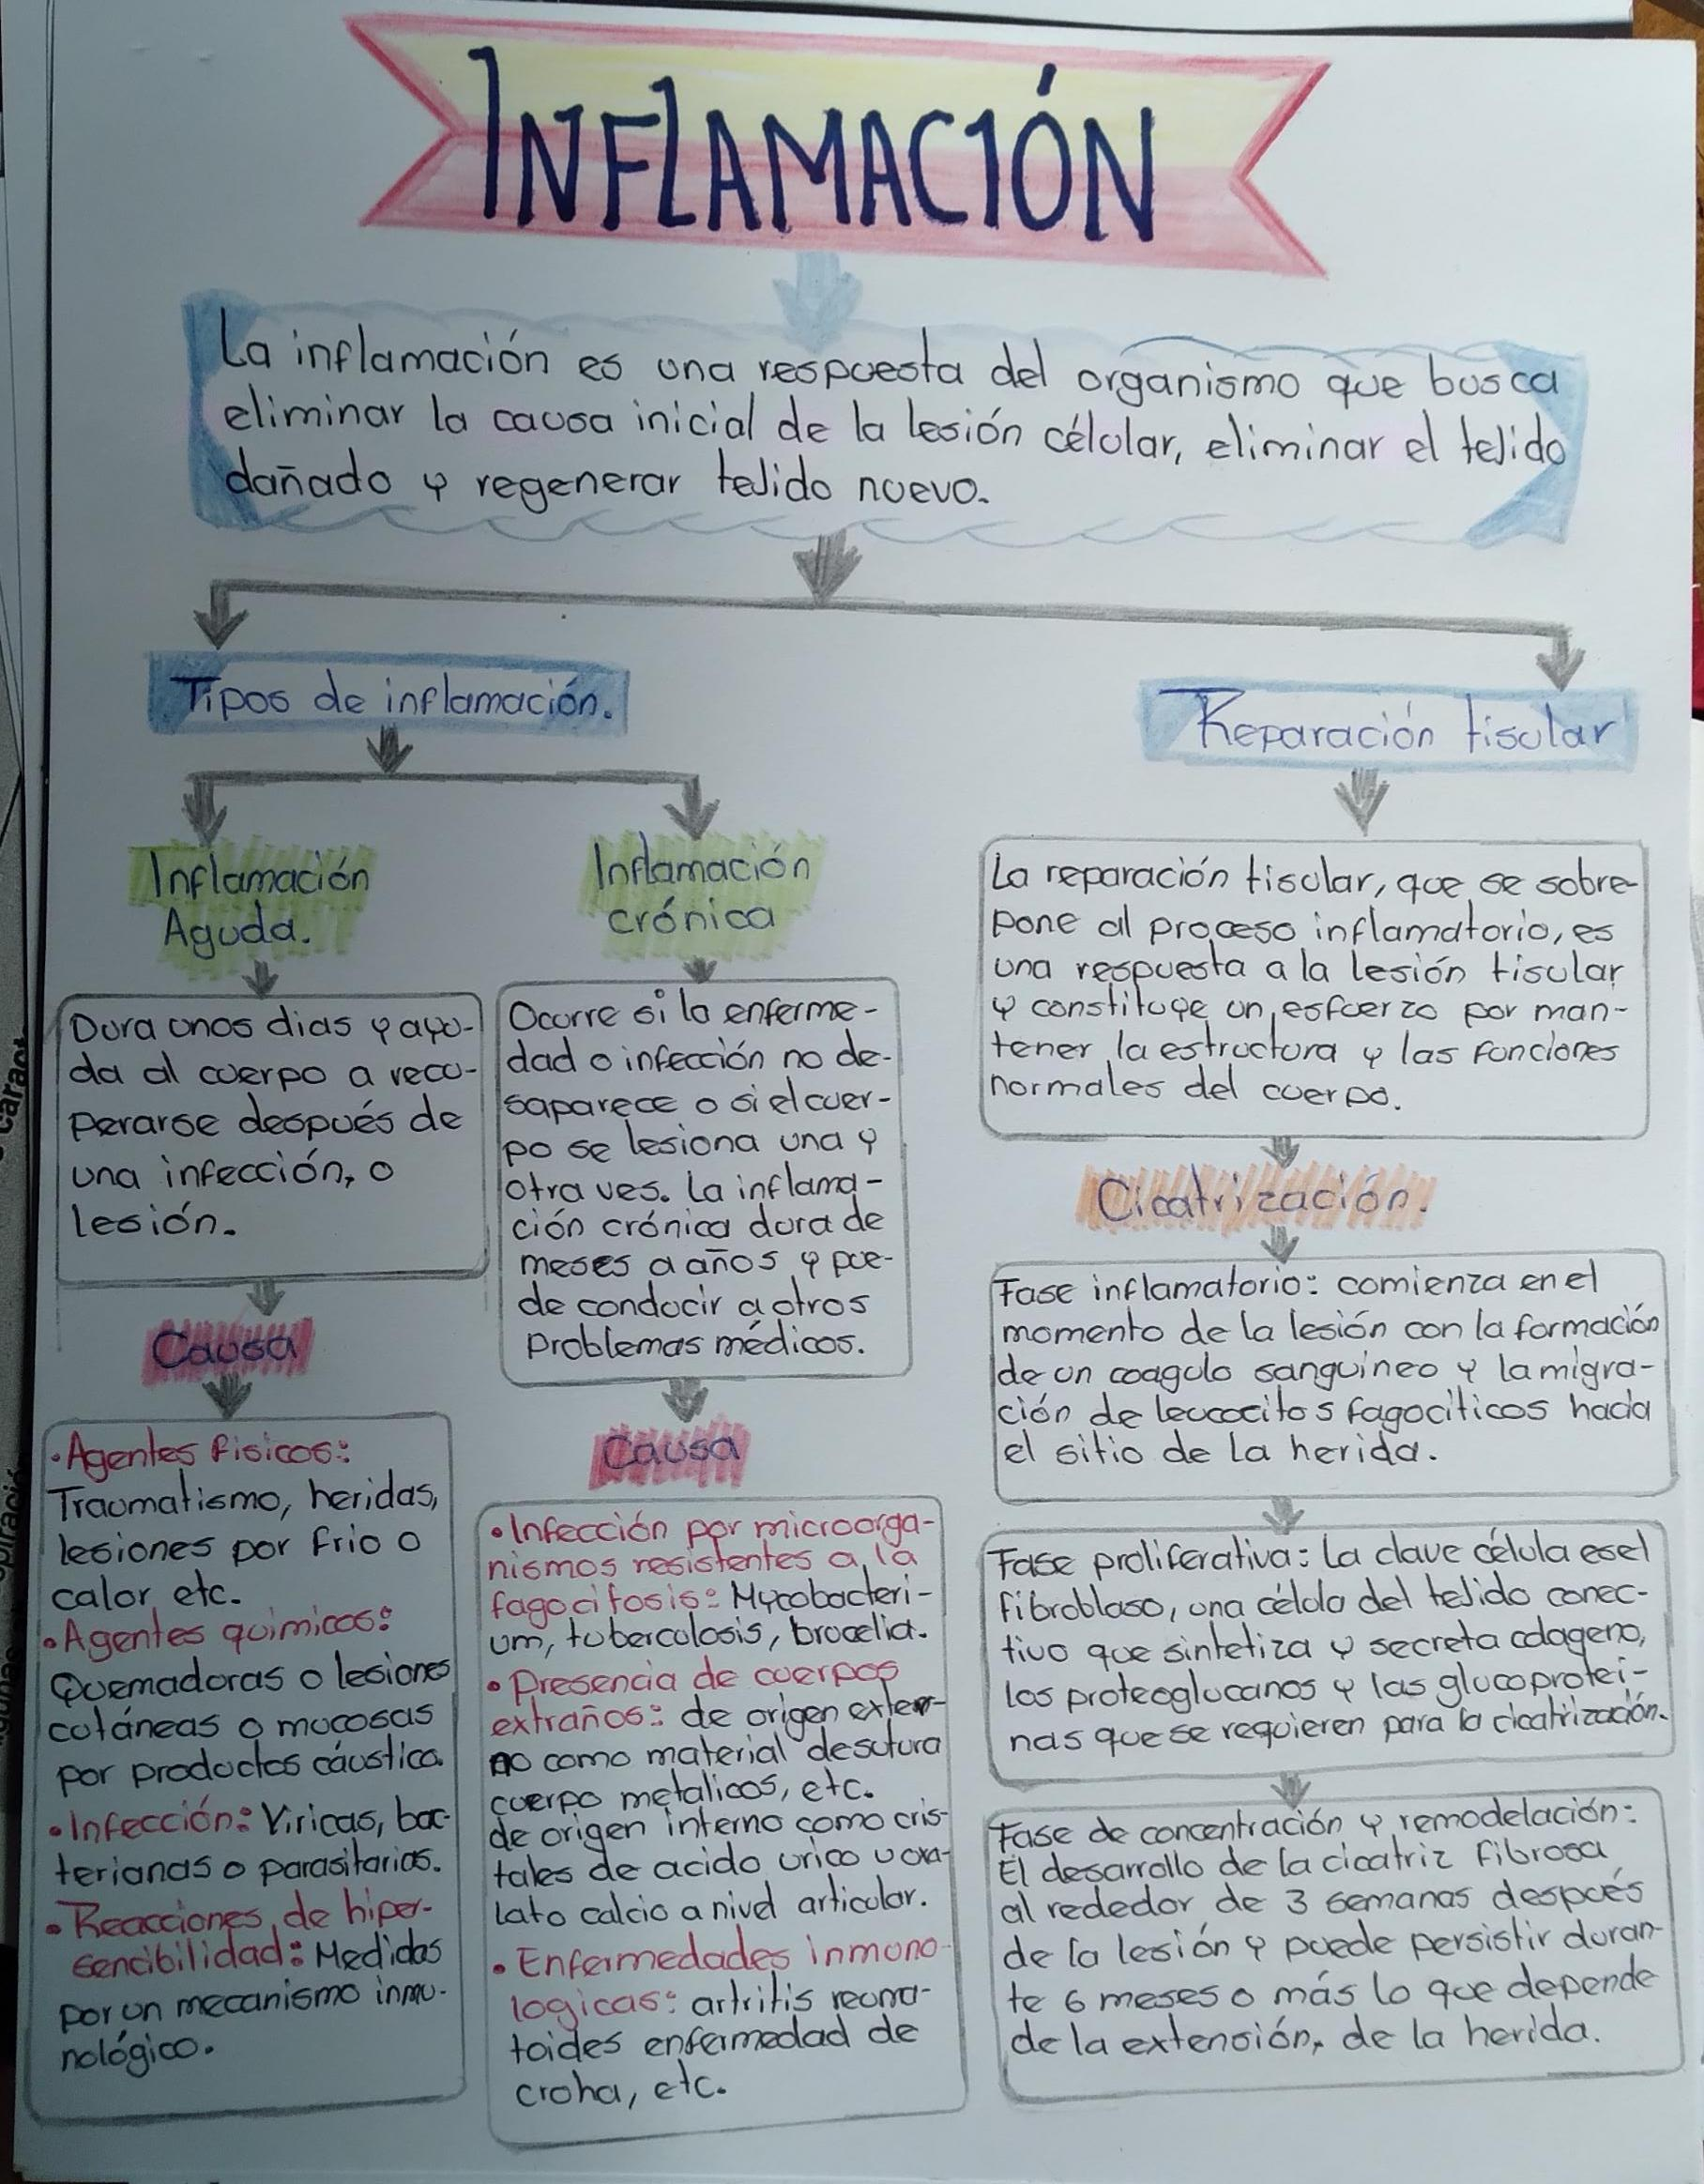 INFLAMACIÓN
La inflamación es una respuesta del organismo que busca
eliminar la causa inicial de la lesión célular, eliminar el tejido
dañado y regenerar tejido nuevo.
Tipos de inflamación.
Inflamación
Aguda.
Dura unos dias y ayu-
da al cuerpo a recu-
perarse después de
una infección, o
lesión.
Causa
• Agentes fisicos:
Traumatismo, heridas,
lesiones por frio o
calor, etc.
• Agentes quimicos:
Quemaduras o lesiones
cutáneas o mucosas
por productos cáustico.
• Infección: Viricas, bac-
terianas o parasitarias.
• Reacciones de hiper-
sencibilidad: Medidas
por un mecanismo inmu-
nológico.
Inflamación
crónica
Ocurre si la enferme-
dad o infección no de-
saparece o si el cuer-
po se lesiona una y
otra ves. La inflama-
ción crónica dura de
meses a años y pue-
de conducir a otros
problemas médicos.
Causa
• Infección por microorga-
nismos resistentes a la
fagocitosis: Mycobacteri-
um, tuberculosis, brucelia.
• Presencia de cuerpos
extraños: de origen exter-
no como material de sutura
cuerpo metalicos, etc.
de origen interno como cris-
tales de acido urico u oxa-
lato calcio a nivel articular.
• Enfermedades inmuno-
logicas: artritis reuma-
toides enfermedad de
croha, etc.
Reparación tisular
La reparación tisular, que se sobre-
pone al proceso inflamatorio, es
una respuesta a la lesión tisular
y constituye un esfuerzo por man-
tener la estructura y las funciones
normales del cuerpo.
Cicatrización.
Fase inflamatorio: comienza en el
momento de la lesión con la formación
de un coagulo sanguineo y la migra-
ción de leucocitos fagociticos hacia
el sitio de la herida.
Fase proliferativa: La clave célula es el
fibroblaso, una célula del tejido conec-
tivo que sintetiza y secreta colageno,
los proteoglucanos y las glucoprotei-
nas que se requieren para la cicatrización.
Fase de concentración y remodelación:
El desarrollo de la cicatriz fibrosa
al rededor de 3 semanas después
de la lesión y puede persistir duran-
te 6 meses o más lo que depende
de la extensión, de la herida.